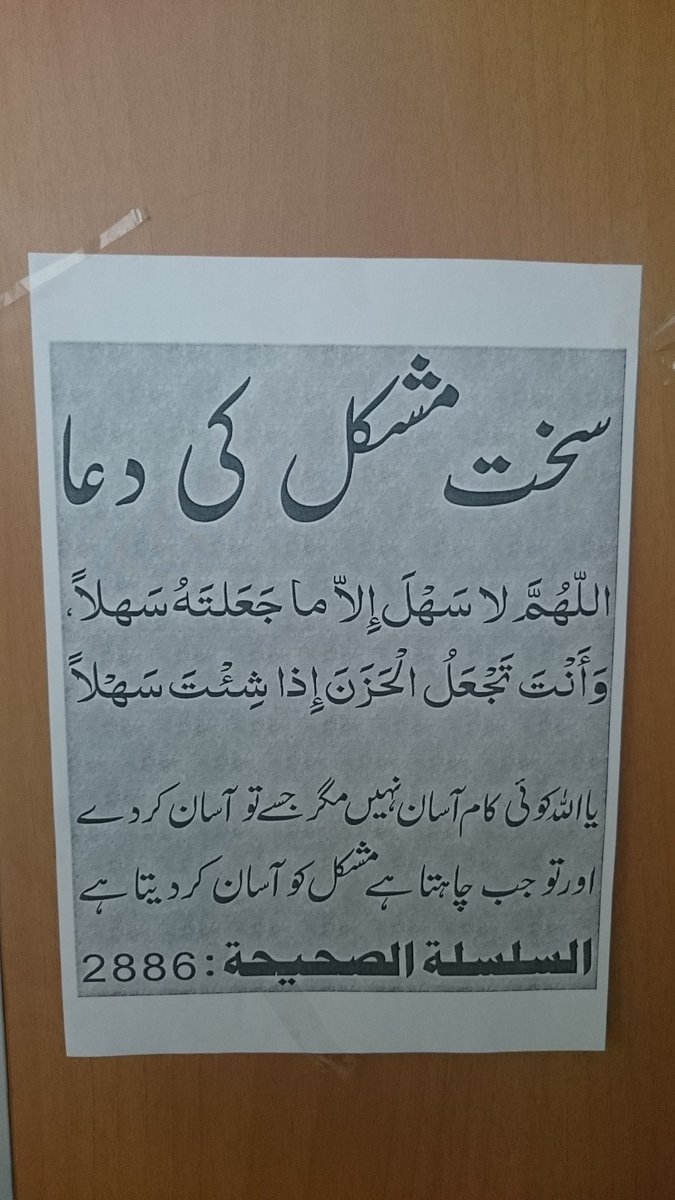 سخت مشکل کی دعا
اللّهُمَّ لا سَهْلَ إِلاّ ما جَعَلتَهُ سَهلاً،
وَأَنْتَ تَجْعَلُ الْحَزَنَ إِذا شِئْتَ سَهْلاً
یااللہ کوئی کام آسان نہیں مگر جسے تو آسان کردے
اورتو جب چاہتا ہے مشکل کو آسان کردیتا ہے
السلسلة الصحيحة : 2886